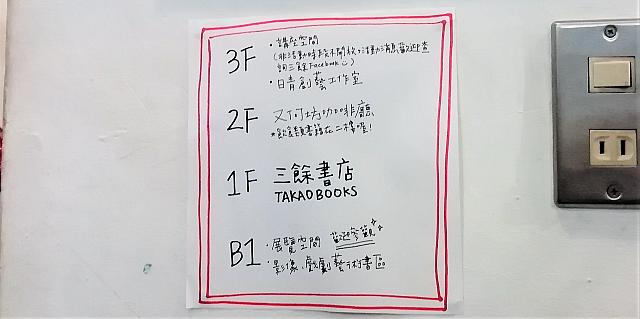 3F
·講座空間
(非活動時段不開放,活動消息歡迎查
詢三餘Facebook
·日青創藝工作室
2F
又何坊咖啡廳
*飲食類書籍在二樓喔!
1F
三餘書店
TAKAOBOOKS
B1
·展覽空間 歡迎參觀
·影像、戲劇藝術書區